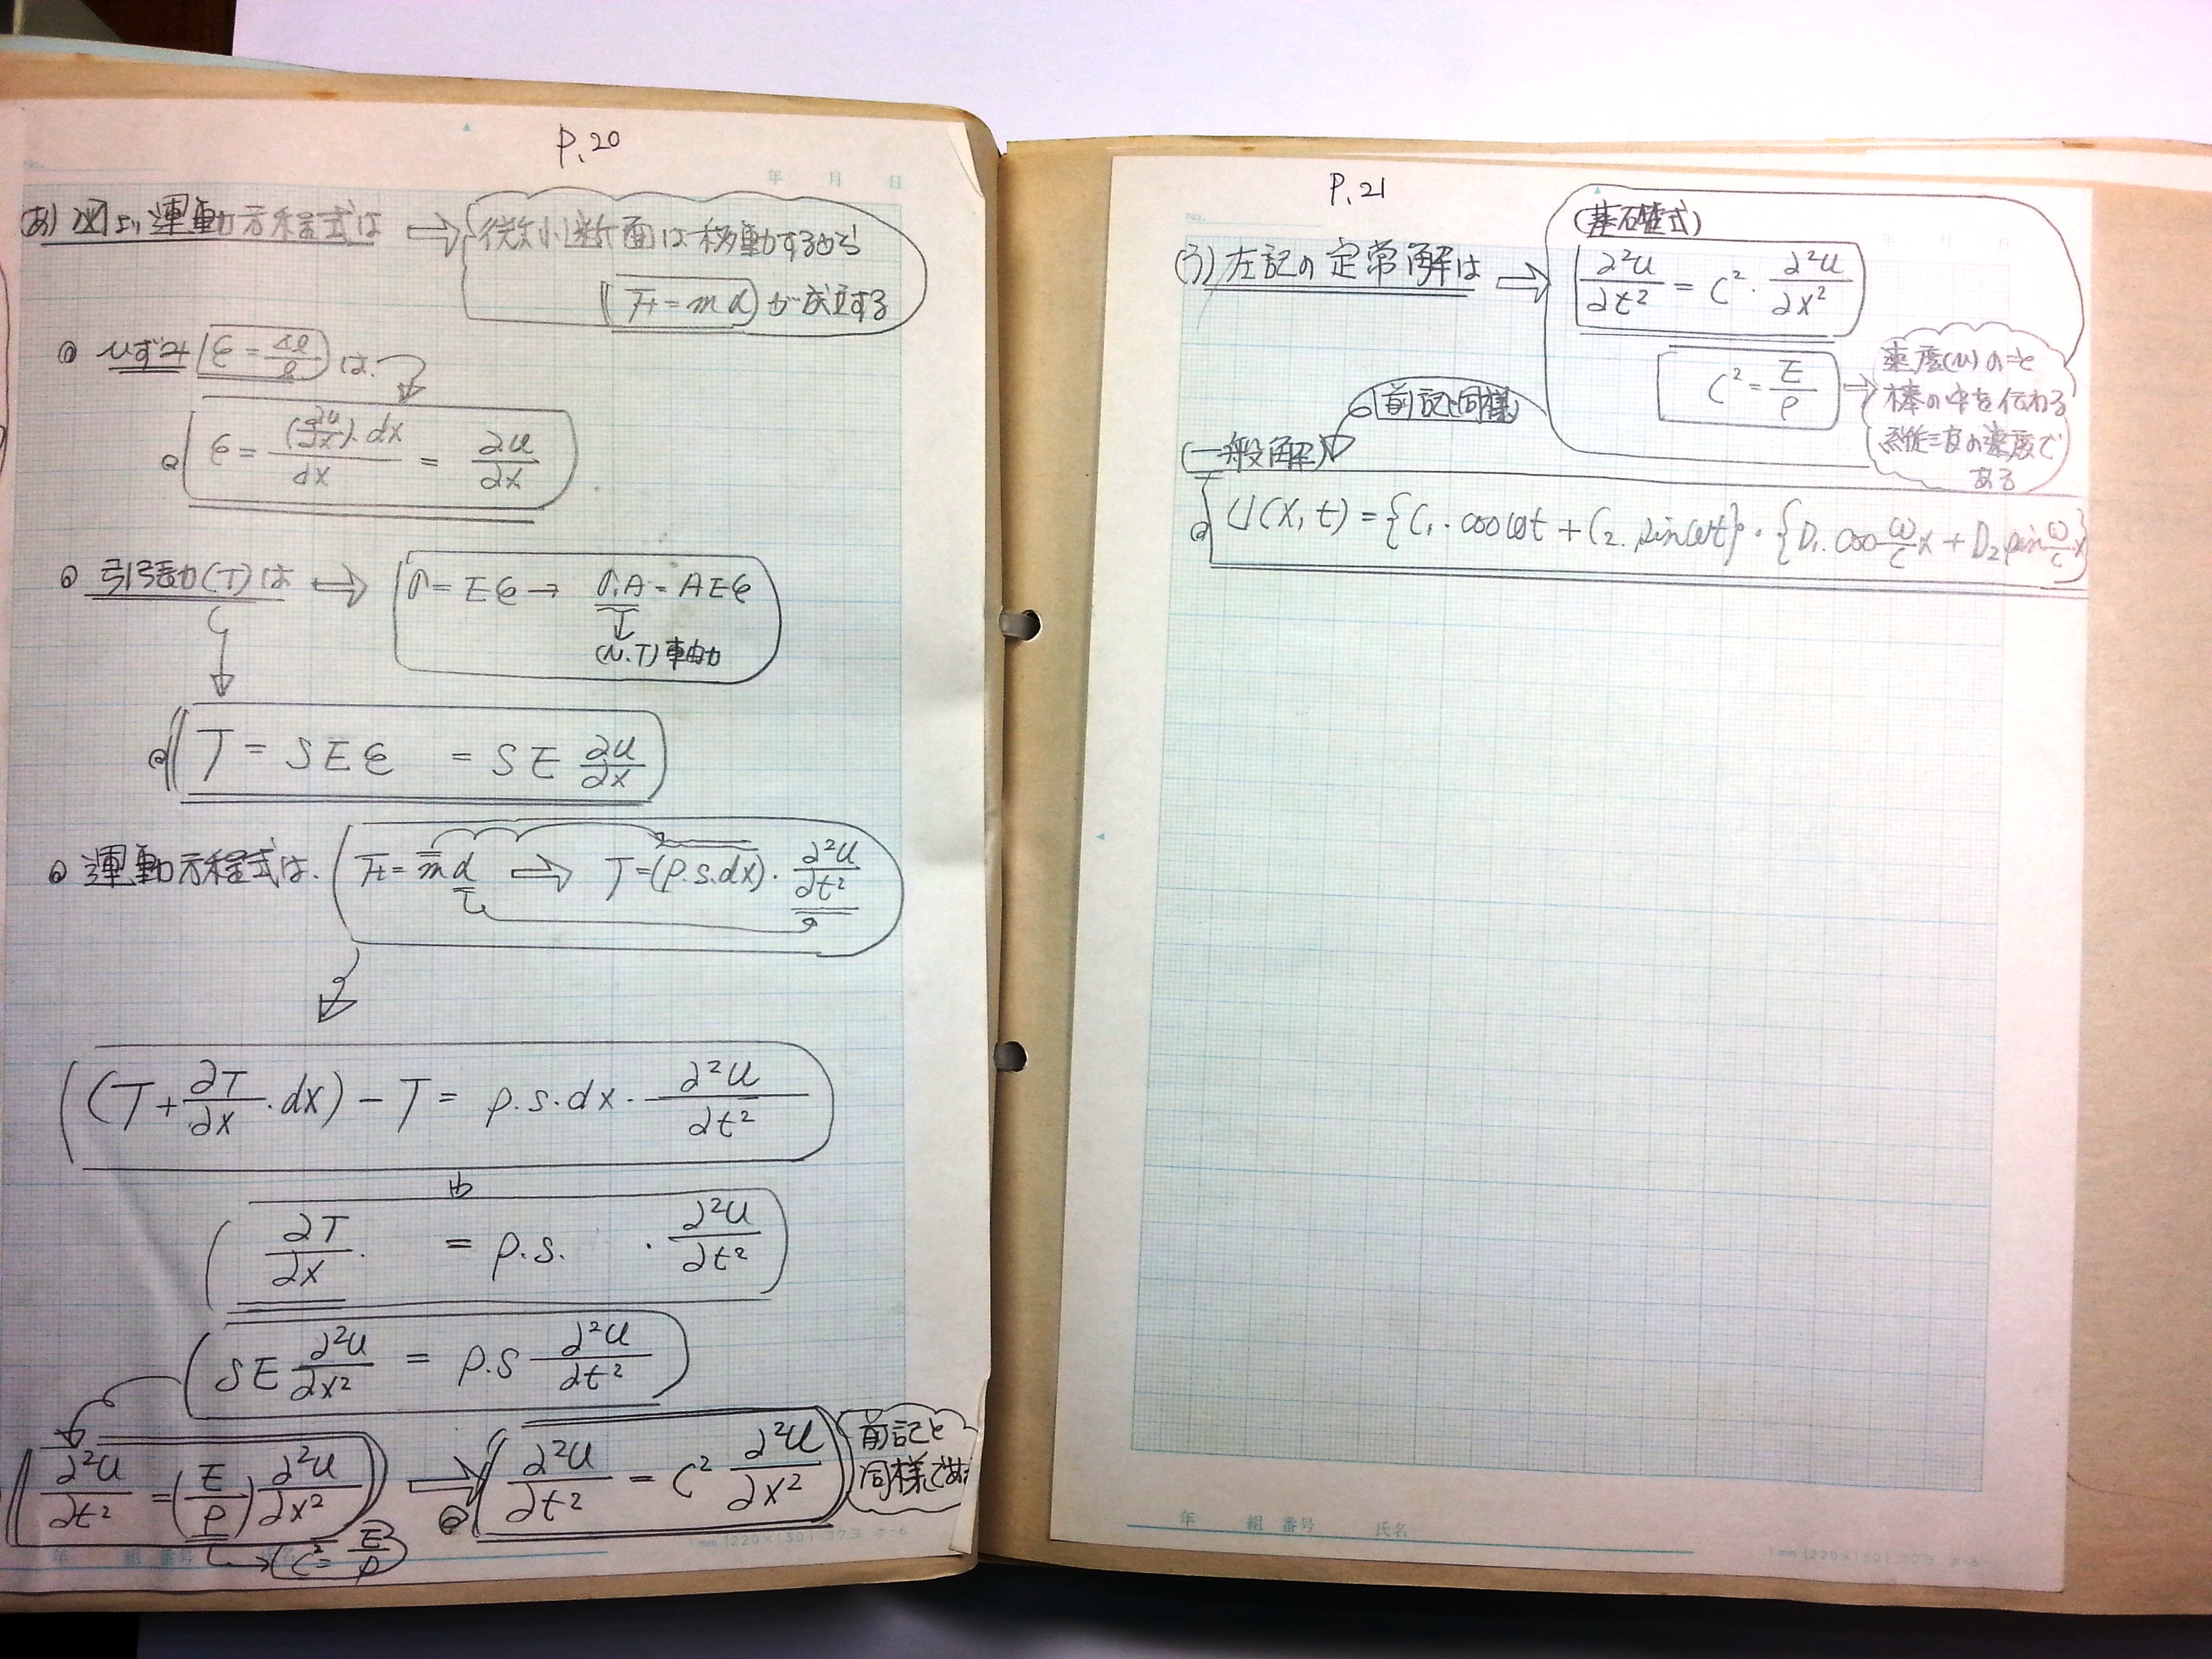 P.20
年 月 日
(あ) 図より運動方程式は ⇒ 微小断面は移動するから
F = mα が成立する
ひずみ ε = Δl/l は、
ε = (∂u/∂x)・dx / dx = ∂u/∂x
引張力(T)は ⇒ σ = Eε → σ.A = AEε
(N.T) 軸力
T = SEε = SE ∂u/∂x
運動方程式は、 F = mα ⇒ T = (ρ.s.dx)・∂²u/∂t²
(T + ∂T/∂x・dx) − T = ρ.s.dx・∂²u/∂t²
∂T/∂x・ = ρ.s. ・∂²u/∂t²
SE ∂²u/∂x² = ρ.s ∂²u/∂t²
∂²u/∂t² = (E/ρ) ∂²u/∂x² ⇒ ∂²u/∂t² = C² ∂²u/∂x² 前記と
同様である
→ C² = E/ρ
年 組 番号 氏名
P.21
No.
年 月 日
(う) 左記の定常解は ⇒ (基礎式)
∂²u/∂t² = C²・∂²u/∂x²
C² = E/ρ → 速度(u)のこと
棒の中を伝わる
縦波の速度で
ある
前記と同様
(一般解)
U(x,t) = {C₁・cosωt + C₂.sinωt}・{D₁.cos ω/c x + D₂ sin ω/c x}
年 組 番号 氏名